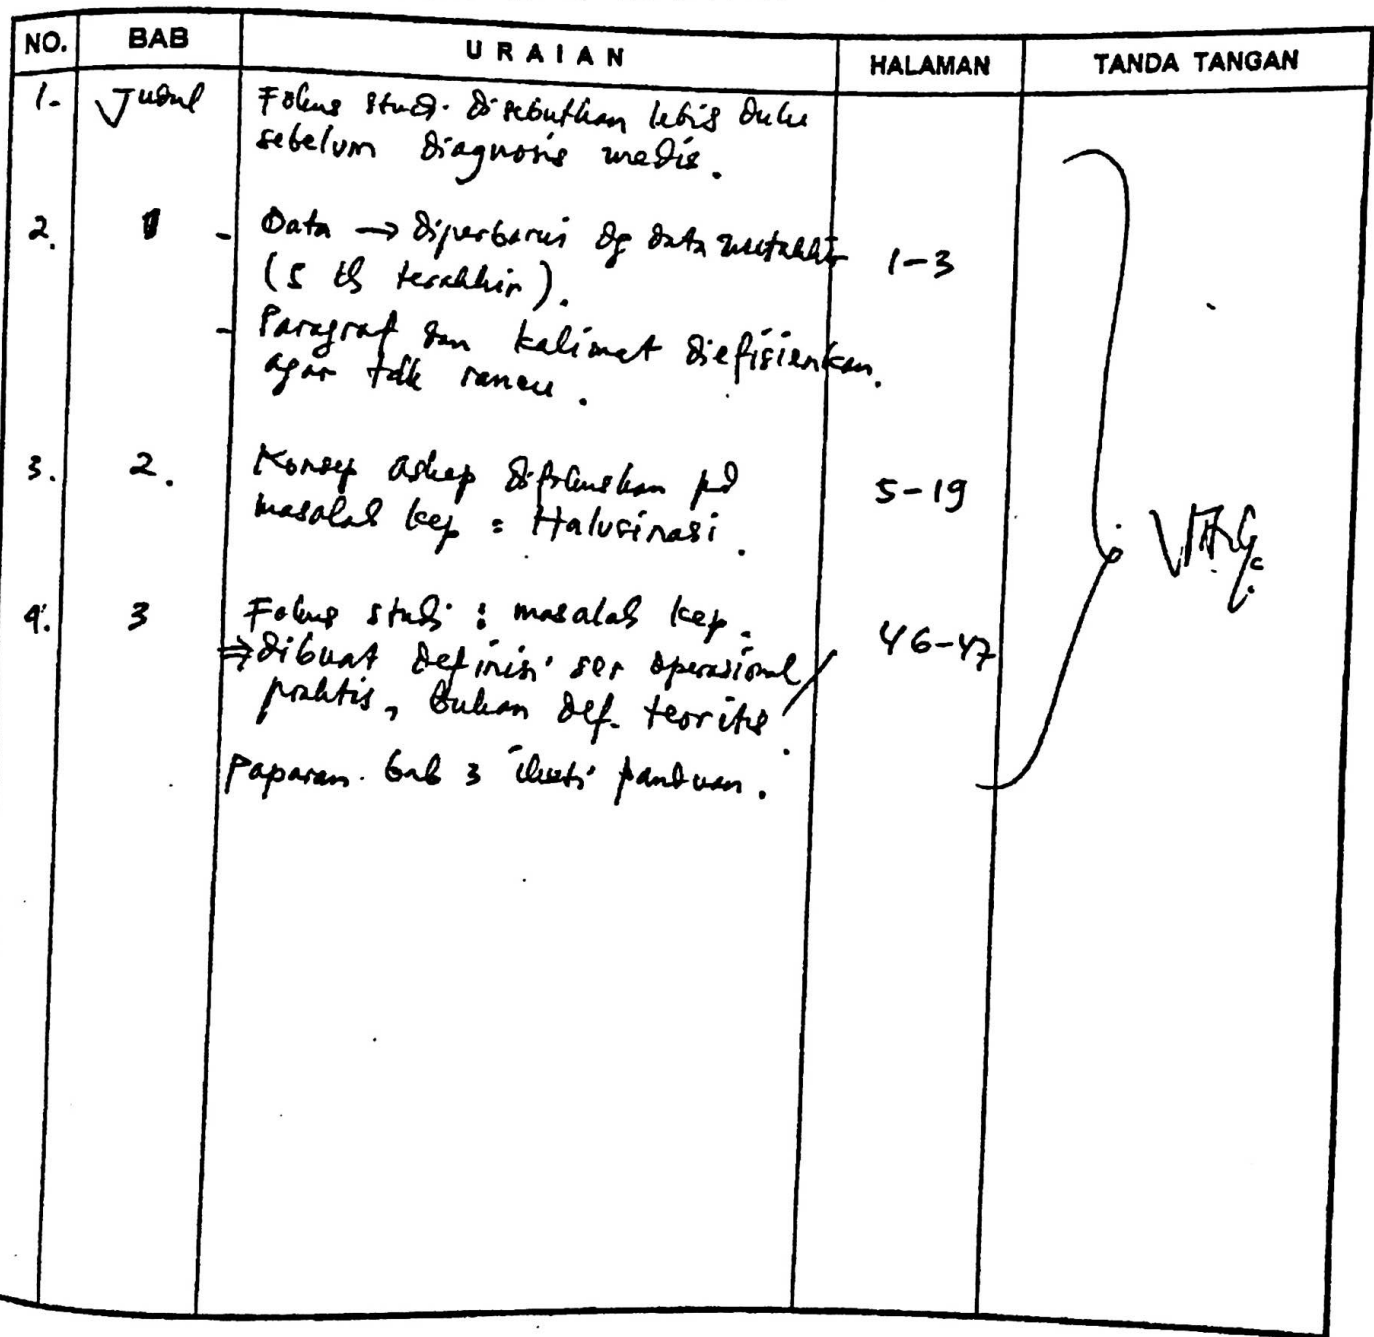 NO. BAB URAIAN HALAMAN TANDA TANGAN
1. Judul Fokus studi disebutkan lebih dulu
sebelum diagnosis medis.
2. 1 - Data → diperbarui dg data mutakhir 1-3
(5 th terakhir).
- Paragraf dan kalimat diefisienkan.
agar tdk rancu.
3. 2. Konsep askep difokuskan pd 5-19
masalah kep : Halusinasi.
4. 3 Fokus studi : masalah kep. 46-47
⇒ dibuat definisi scr operasional
praktis, bukan def. teoritis.
Paparan bab 3 ikuti panduan.